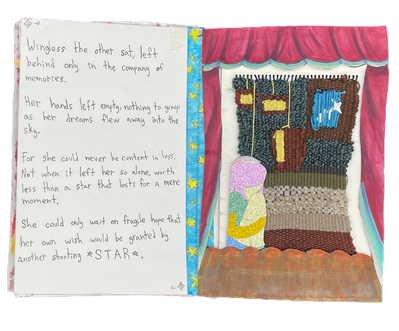 Wingless the other sat, left
behind only in the company of
memories.
Her hands left empty, nothing to grasp
as her dreams flew away into the
sky.
For she could never be content in loss.
Not when it left her so alone, worth
less than a star that lasts for a mere
moment.
She could only wait on fragile hope that
her own wish would be granted by
another shooting *STAR*.